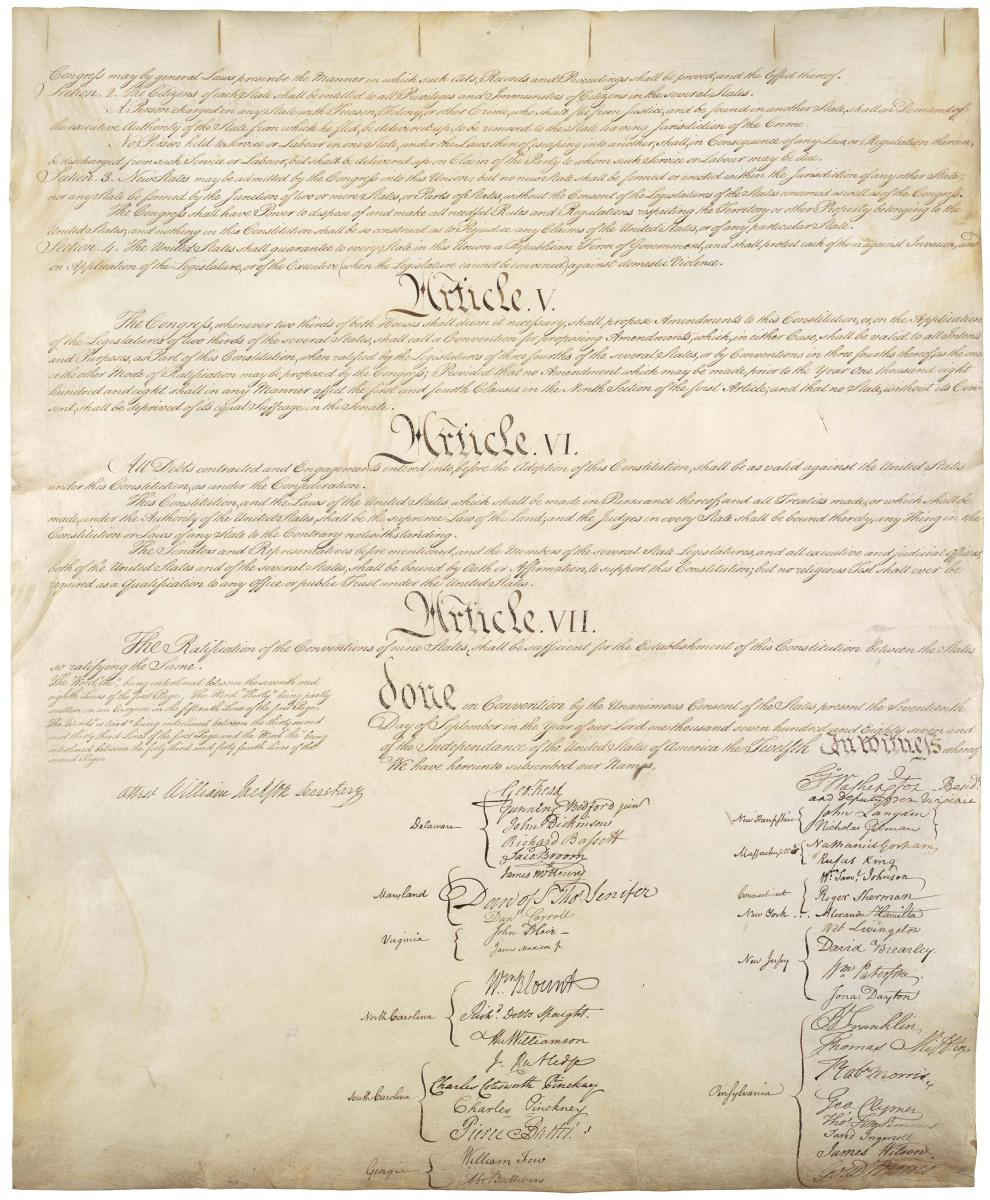 Congress may by general Laws prescribe the Manner in which such Acts, Records and Proceedings shall be proved, and the Effect thereof.
Section. 2. The Citizens of each State shall be entitled to all Privileges and Immunities of Citizens in the several States.
A Person charged in any State with Treason, Felony, or other Crime, who shall flee from Justice, and be found in another State, shall on Demand of
the executive Authority of the State from which he fled, be delivered up, to be removed to the State having Jurisdiction of the Crime.
No Person held to Service or Labour in one State, under the Laws thereof, escaping into another, shall, in Consequence of any Law or Regulation therein,
be discharged from such Service or Labour, but shall be delivered up on Claim of the Party to whom such Service or Labour may be due.
Section. 3. New States may be admitted by the Congress into this Union; but no new State shall be formed or erected within the Jurisdiction of any other State;
nor any State be formed by the Junction of two or more States, or Parts of States, without the Consent of the Legislatures of the States concerned as well as of the Congress.
The Congress shall have Power to dispose of and make all needful Rules and Regulations respecting the Territory or other Property belonging to the
United States; and nothing in this Constitution shall be so construed as to Prejudice any Claims of the United States, or of any particular State.
Section. 4. The United States shall guarantee to every State in this Union a Republican Form of Government, and shall protect each of them against Invasion; and
on Application of the Legislature, or of the Executive (when the Legislature cannot be convened) against domestic Violence.
Article. V.
The Congress, whenever two thirds of both Houses shall deem it necessary, shall propose Amendments to this Constitution, or, on the Application
of the Legislatures of two thirds of the several States, shall call a Convention for proposing Amendments, which, in either Case, shall be valid to all Intents
and Purposes, as Part of this Constitution, when ratified by the Legislatures of three fourths of the several States, or by Conventions in three fourths thereof, as the one
or the other Mode of Ratification may be proposed by the Congress; Provided that no Amendment which may be made prior to the Year One thousand eight
hundred and eight shall in any Manner affect the first and fourth Clauses in the Ninth Section of the first Article; and that no State, without its Con-
sent, shall be deprived of its equal Suffrage in the Senate.
Article. VI.
All Debts contracted and Engagements entered into, before the Adoption of this Constitution, shall be as valid against the United States
under this Constitution, as under the Confederation.
This Constitution, and the Laws of the United States which shall be made in Pursuance thereof; and all Treaties made, or which shall be
made, under the Authority of the United States, shall be the supreme Law of the Land; and the Judges in every State shall be bound thereby, any Thing in the
Constitution or Laws of any State to the Contrary notwithstanding.
The Senators and Representatives before mentioned, and the Members of the several State Legislatures, and all executive and judicial Officers,
both of the United States and of the several States, shall be bound by Oath or Affirmation, to support this Constitution; but no religious Test shall ever be
required as a Qualification to any Office or public Trust under the United States.
Article. VII.
The Ratification of the Conventions of nine States, shall be sufficient for the Establishment of this Constitution between the States
so ratifying the Same.
The Word, "the", being interlined between the seventh and
eighth Lines of the first Page, The Word "Thirty" being partly
written on an Erazure in the fifteenth Line of the first Page,
The Words "is tried" being interlined between the thirty second
and thirty third Lines of the first Page and the Word "the" being
interlined between the forty third and forty fourth Lines of the
second Page.
attest William Jackson Secretary
done in Convention by the Unanimous Consent of the States present the Seventeenth
Day of September in the Year of our Lord one thousand seven hundred and Eighty seven and
of the Independance of the United States of America the Twelfth In Witness whereof
We have hereunto subscribed our Names,
Delaware
Geo: Read
Gunning Bedford jun
John Dickinson
Richard Bassett
Jaco: Broom
Maryland
James McHenry
Dan of St Thos. Jenifer
Danl Carroll
Virginia
John Blair—
James Madison Jr.
North Carolina
Wm Blount
Richd. Dobbs Spaight.
Hu Williamson
South Carolina
J. Rutledge
Charles Cotesworth Pinckney
Charles Pinckney
Pierce Butler.
Georgia
William Few
Abr Baldwin
Go. Washington—Presidt.
and deputy from Virginia
New Hampshire
John Langdon
Nicholas Gilman
Massachusetts
Nathaniel Gorham
Rufus King
Connecticut
Wm. Saml. Johnson
Roger Sherman
New York . . .
Alexander Hamilton
New Jersey
Wil: Livingston
David Brearley.
Wm. Paterson.
Jona: Dayton
Pensylvania
B Franklin
Thomas Mifflin
Robt Morris
Geo. Clymer
Thos. FitzSimons
Jared Ingersoll
James Wilson.
Gouv Morris